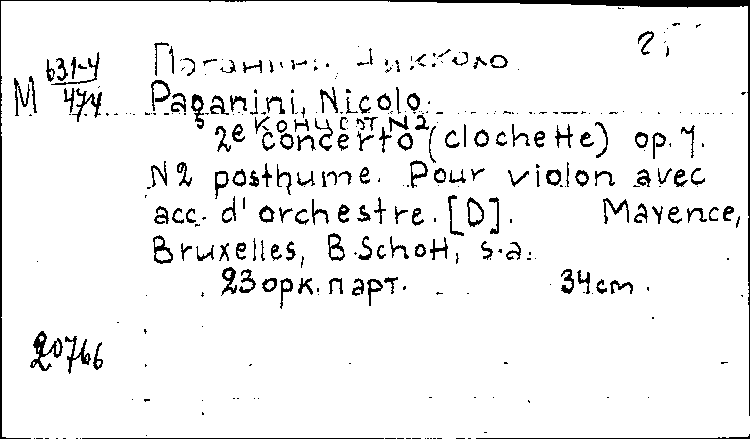 Паганини, Никколо
М 631-4/474 Paganini, Nicolo.
Концерт N2
2e concerto (clochette) op. 7.
N2 posthume. Pour violon avec
acc. d'orchestre. [D]. Mayence,
Bruxelles, B. Schott, s.a.
23 орк. парт. 34 cm.
20766